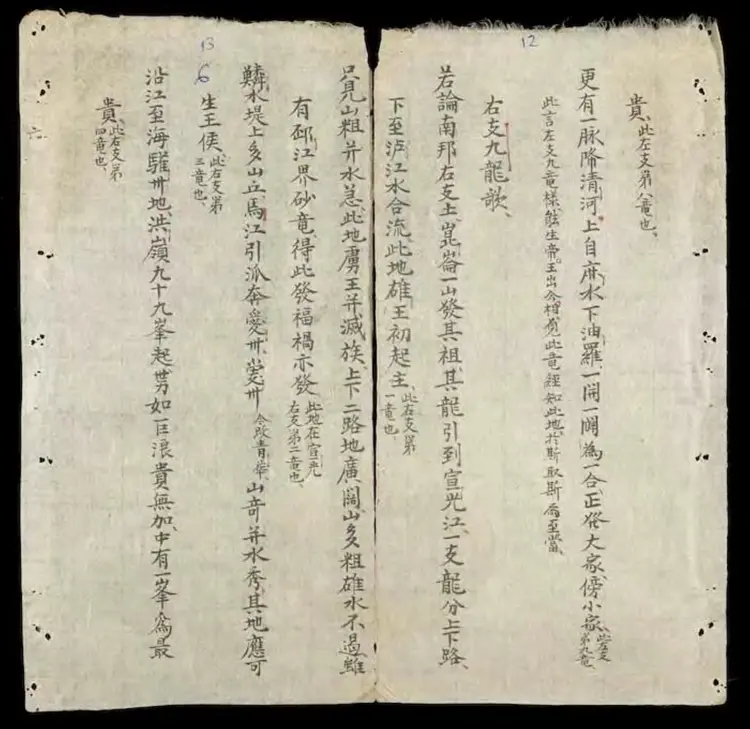 12
貴、此左支第八竜也、
更有一脉降清河上自麻水下油羅一開一闔為一合正發大家傍小家、此左支第九竜
此言左支九竜樣能生帝王出公相覓此竜經知此地於斯取斯為至當
右支九龍歌、
若論南邦右支土崑崙一山發其祖其龍引到宣光江一支龍分上下路、
下至泸江水合流此地雄王初起主、此右支第一竜也、
13
只見山粗并水急此地虜王并滅族上下二路地廣闊山多粗雄水不過雖
有江界砂竜得此發福禍亦發此地在宣光右支第二竜也、
6
鱗水堤上多山丘馬江引派奔愛州愛州今改青華山奇并水秀其地應可
生王侯此右支第三竜也、
沿江至海驩州地洪嶺九十九峯起勢如巨浪貴無加中有一峯為最
貴、此右支第四竜也、
六